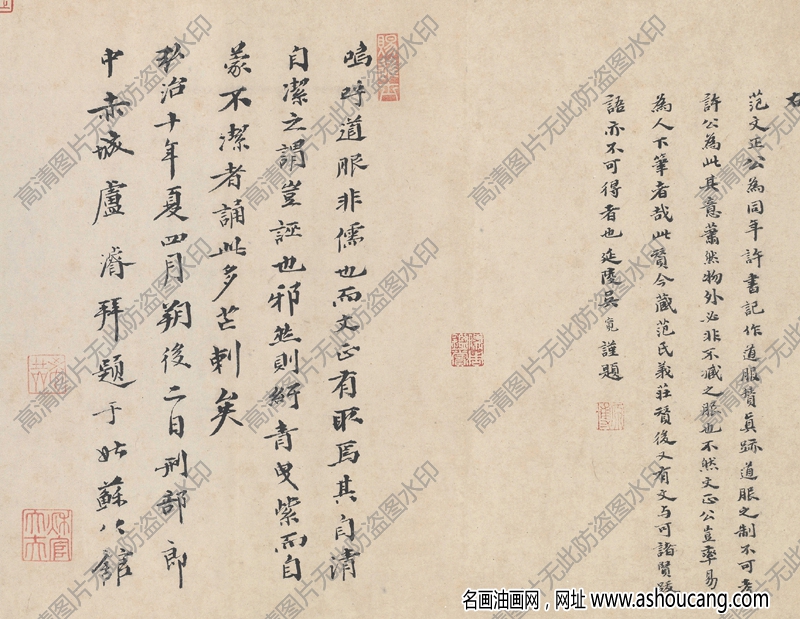 范文正公為同年許書記作道服贊真跡道服之制不可考
許公為此其意蕭然物外必非不臧之服也不然文正公豈率易
為人下筆者哉此贊今藏范氏義莊贊後又有文与可諸賢跋
語亦不可得者也延陵吳寬謹題
嗚呼道服非儒也而文正有取焉其自清
自潔之謂豈誣也邪然則紆青曳紫而自
蒙不潔者誦此多芒刺矣
弘治十年夏四月朔後二日刑部郎
中赤城盧濬拜題于姑蘇公館
高清图片无此防盗图水印
名画油画网，网址 www.ashoucang.com